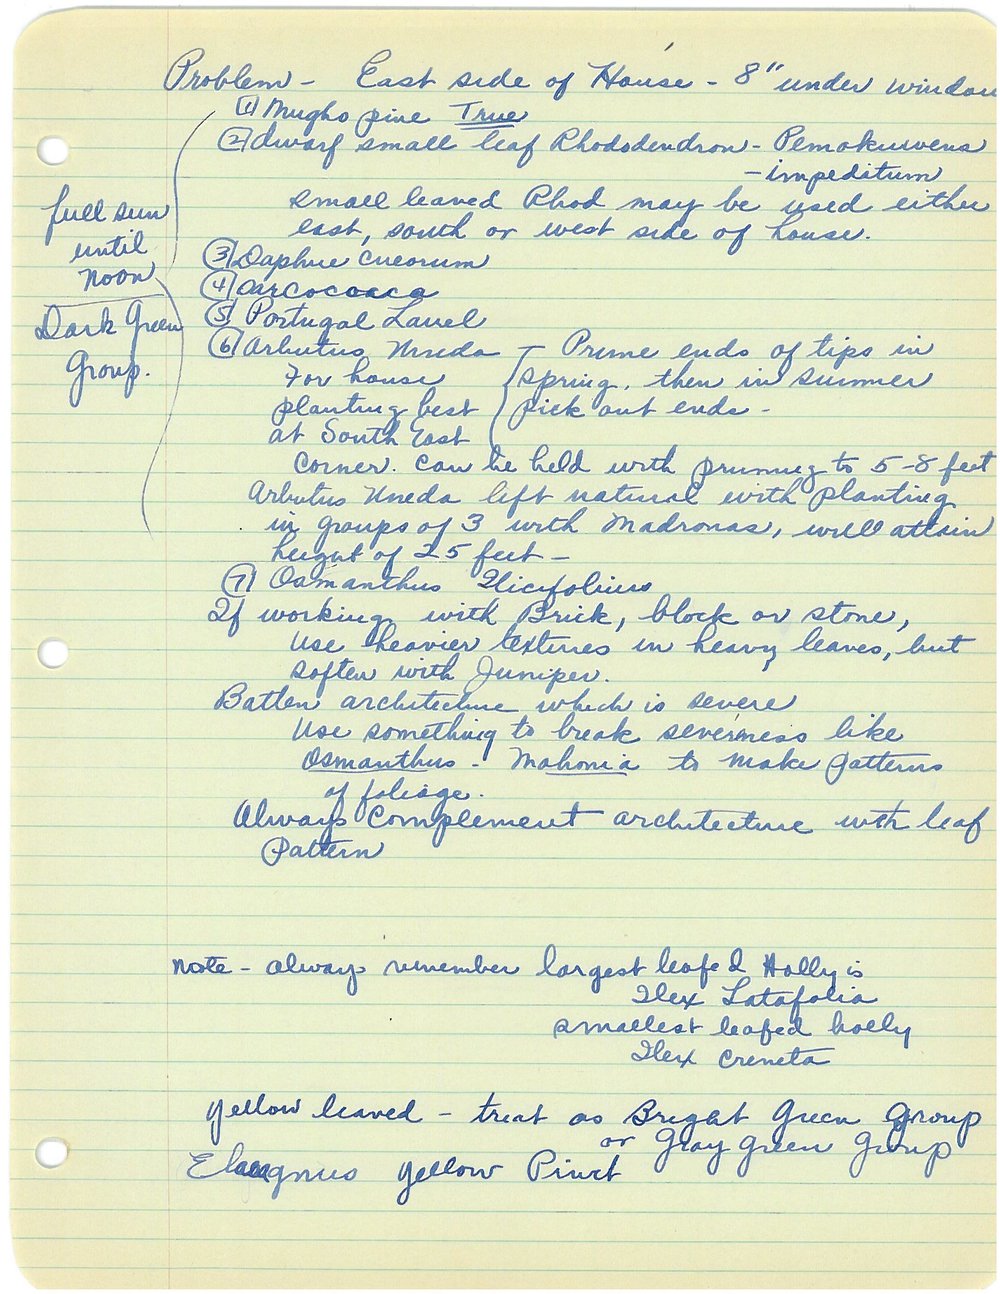 Problem - East side of House - 8" under window
① Mugho pine True
② dwarf small leaf Rhododendron - Pemakuivens
- impeditum
small leaved Rhod may be used either
east, south or west side of house.
full sun
until
noon
③ Daphne cneorum
④ Sarcococca
⑤ Portugal Laurel
Dark Green
Group.
⑥ Arbutus Uneda - Prune ends of tips in
For house spring, then in summer
planting best pick out ends -
at South East
corner. Can be held with pruning to 5-8 feet
Arbutus Uneda left natural with planting
in groups of 3 with Madronas, will attain
height of 25 feet -
⑦ Osmanthus Ilicifolius
If working with Brick, block or stone,
use heavier textures in heavy leaves, but
soften with Juniper.
Batten architecture which is severe
use something to break severness like
Osmanthus - Mahonia to make patterns
of foliage.
Always Complement architecture with leaf
Pattern
Note - always remember largest leafed Holly is
Ilex Latafolia
smallest leafed holly
Ilex creneta
yellow leaved - treat as Bright Green Group
or Gray Green Group
Elaegnus yellow